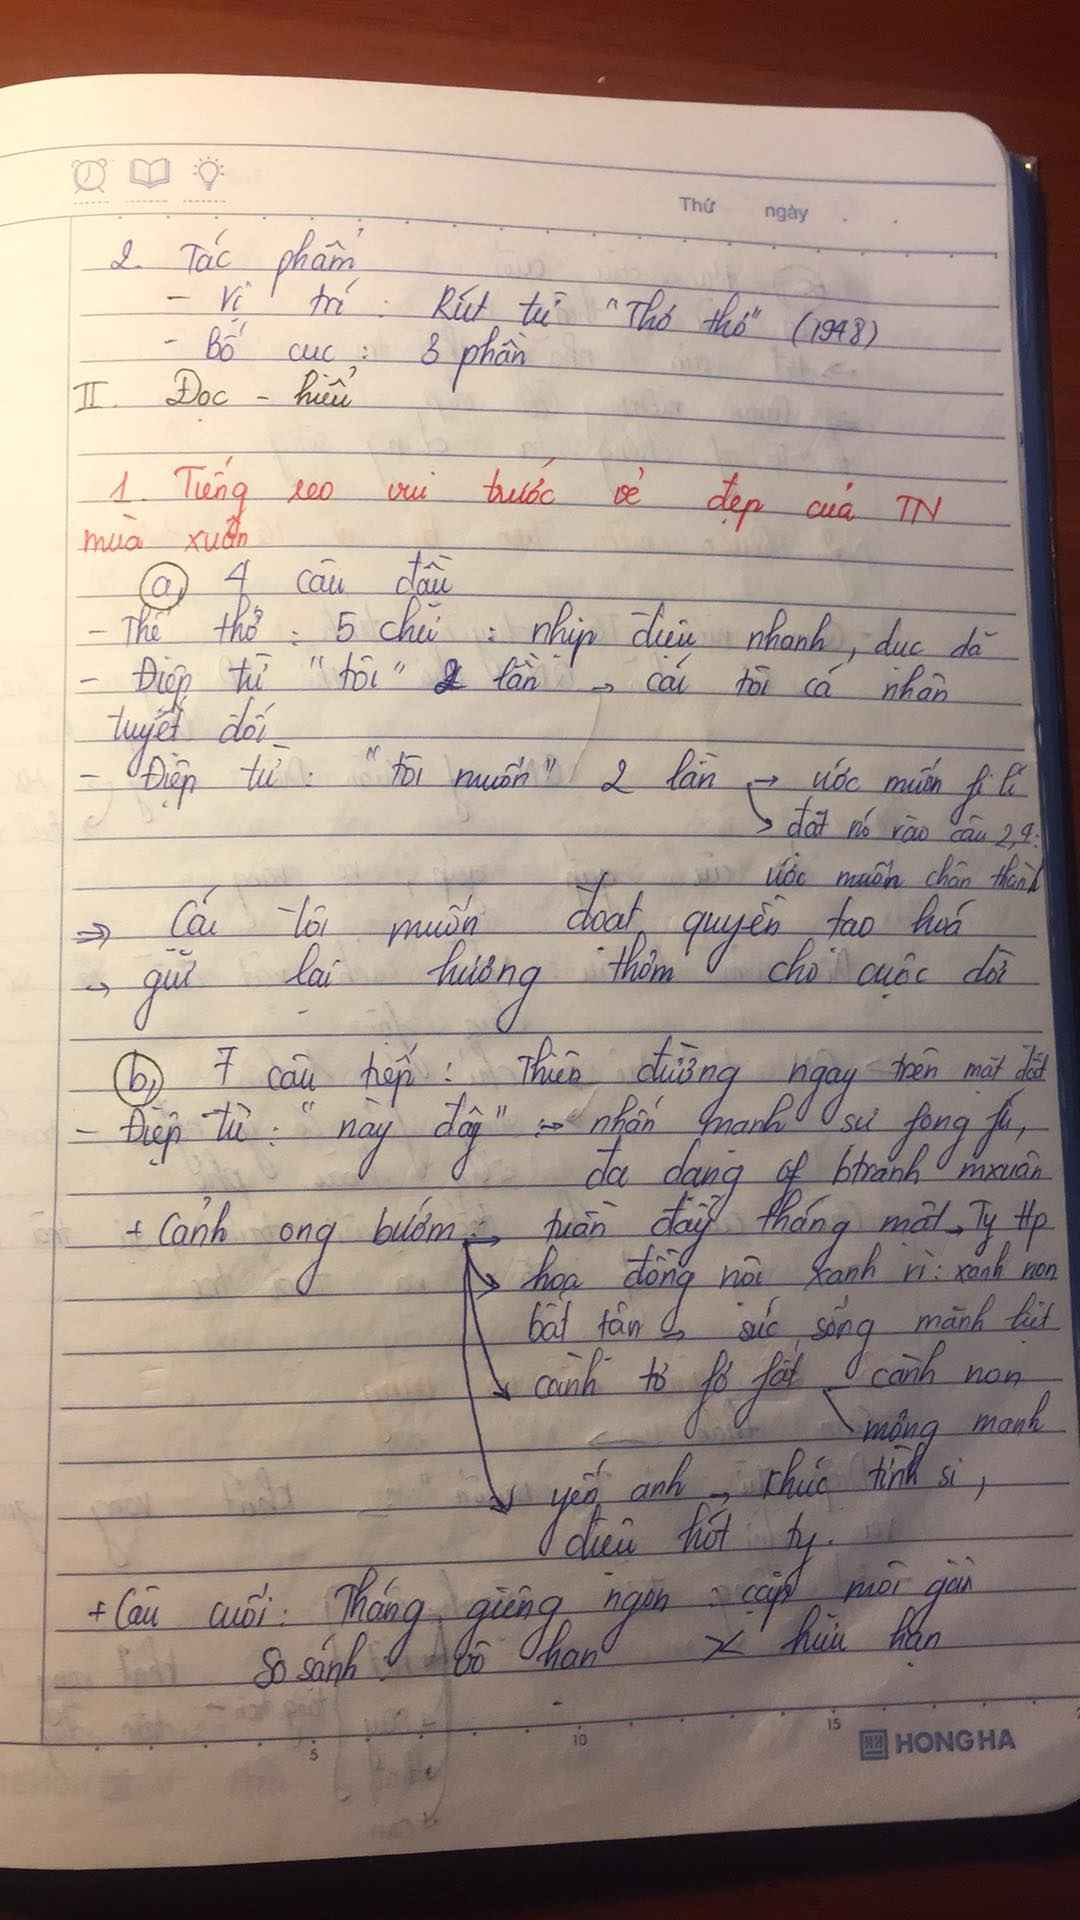 Thứ ngày
2. Tác phẩm
- Vị trí : Rút từ "Thơ thơ" (1948)
- Bố cục : 3 phần
II. Đọc - hiểu
1. Tiếng reo vui trước vẻ đẹp của TN
mùa xuân
a, 4 câu đầu
- Thể thơ : 5 chữ : nhịp điệu nhanh, dục dã
- Điệp từ "tôi" 2 lần → cái tôi cá nhân
tuyệt đối
- Điệp từ : "tôi muốn" 2 lần → ước muốn fi lí
→ đặt nó vào câu 2,4:
ước muốn chân thành
⇒ Cái tôi muốn đoạt quyền tạo hoá
→ giữ lại hương thơm cho cuộc đời
b, 7 câu tiếp : Thiên đường ngay trên mặt đất
- Điệp từ : "này đây" → nhấn mạnh sự fong fú,
đa dạng of btranh mxuân
+ Cảnh ong bướm : → tuần đầy tháng mật → Ty Hp
hoa đồng nội xanh rì : xanh non
bất tận → sức sống mãnh liệt
cành tơ fơ fất - cành non
mỏng manh
yến anh → khúc tình si,
điệu hót ty.
+ Câu cuối : Tháng giêng ngon : cặp môi gần
So sánh : vô hạn × hữu hạn
5 10 15
HONG HA